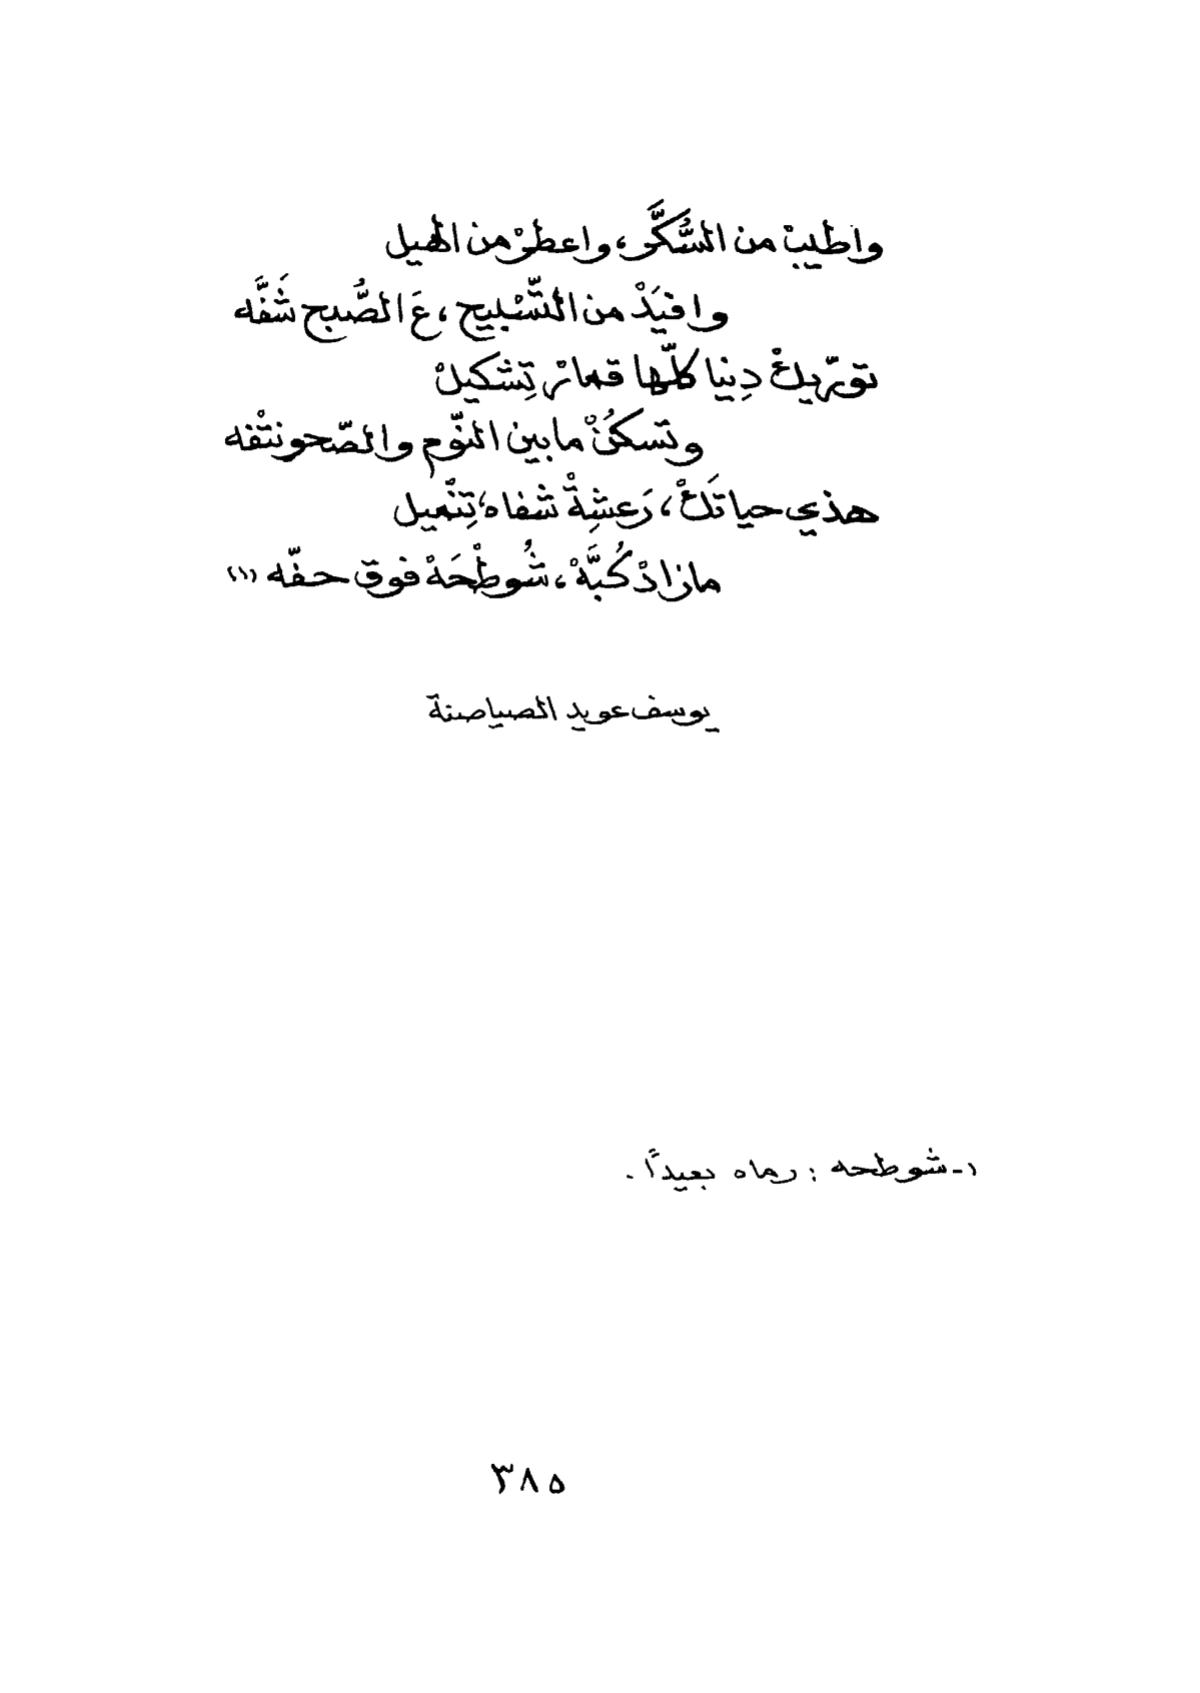 واطيبْ من السُّكَّر، واعطرْ من الهيل
وافيَدْ من التّسْبيح، عَ الصُّبح شَفَّه
تورّيكْ دِنيا كلّها قمارْ تِشكيلْ
وتسكُنْ مابين النّوم والصّحو نتْفه
هذي حياتَكْ، رَعشِةْ شفاه، تِنْميل
مازادْ كُبَّهْ، شُوطْحَهْ فوق حفّه (١)
يوسف عويد الصياصنة
١- شوطحه : رماه بعيداً .
٣٨٥